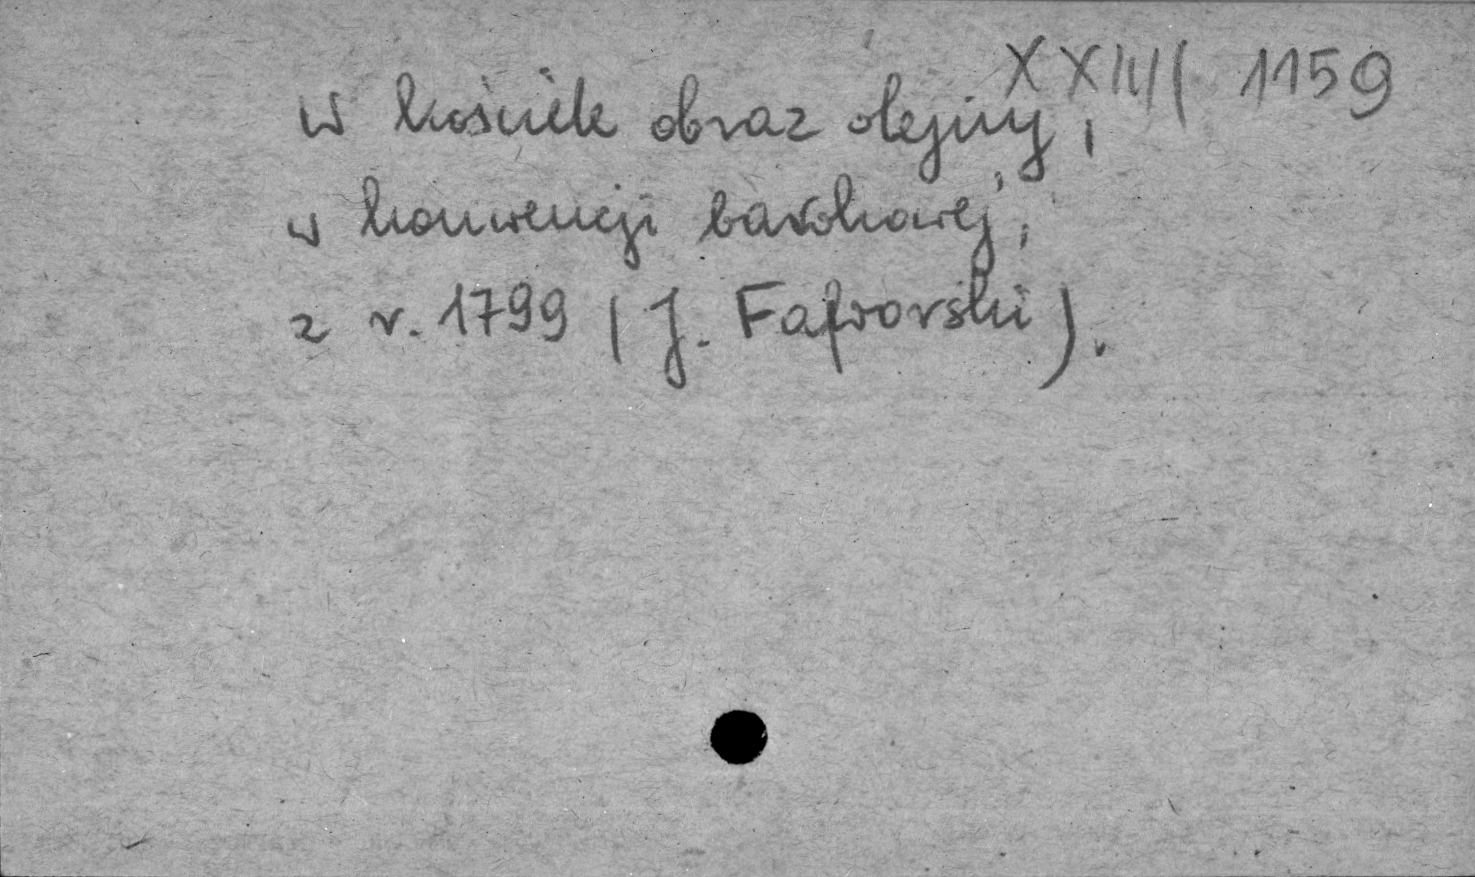 XXIII 1159
w kościele obraz olejny,
w konwencji barokowej,
z r. 1799 (J. Faworski).